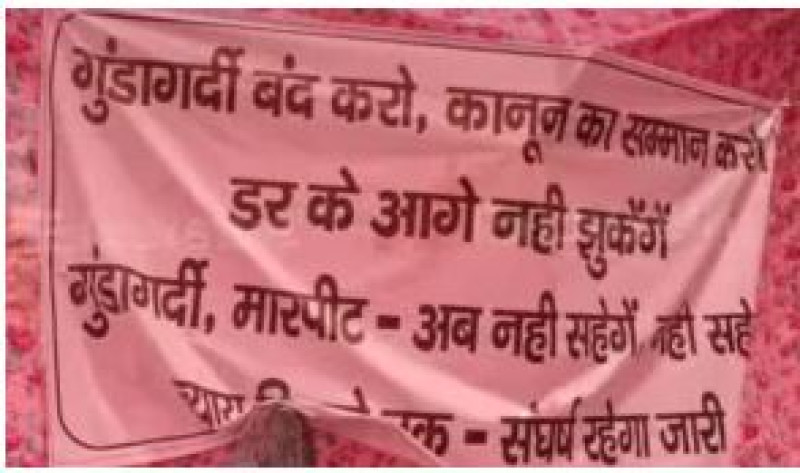 गुंडागर्दी बंद करो, कानून का सम्मान करो
डर के आगे नही झुकेंगें
गुंडागर्दी, मारपीट - अब नही सहेगें नही सहे
न्याय तक - संघर्ष रहेगा जारी